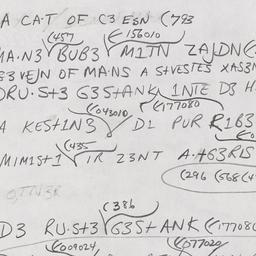 A CA·T OF C3 ESN (793
(457 (-156010
MA·N3 BUB3 M1TN ZAJDN(
83 VEJN OF MA·NS A STVESTES XAS3N
DRU·St3 G3StANK 1NTE D3 H
(043010 (177080
A KEST1N3 D1 PUR R1B3
(435
M1M1St1 1R Z3NT A·tG3R1S
(296 (568(4
OTTN3R
(386
D3 RU·St3 G3StANK (177080
(009024 (077020